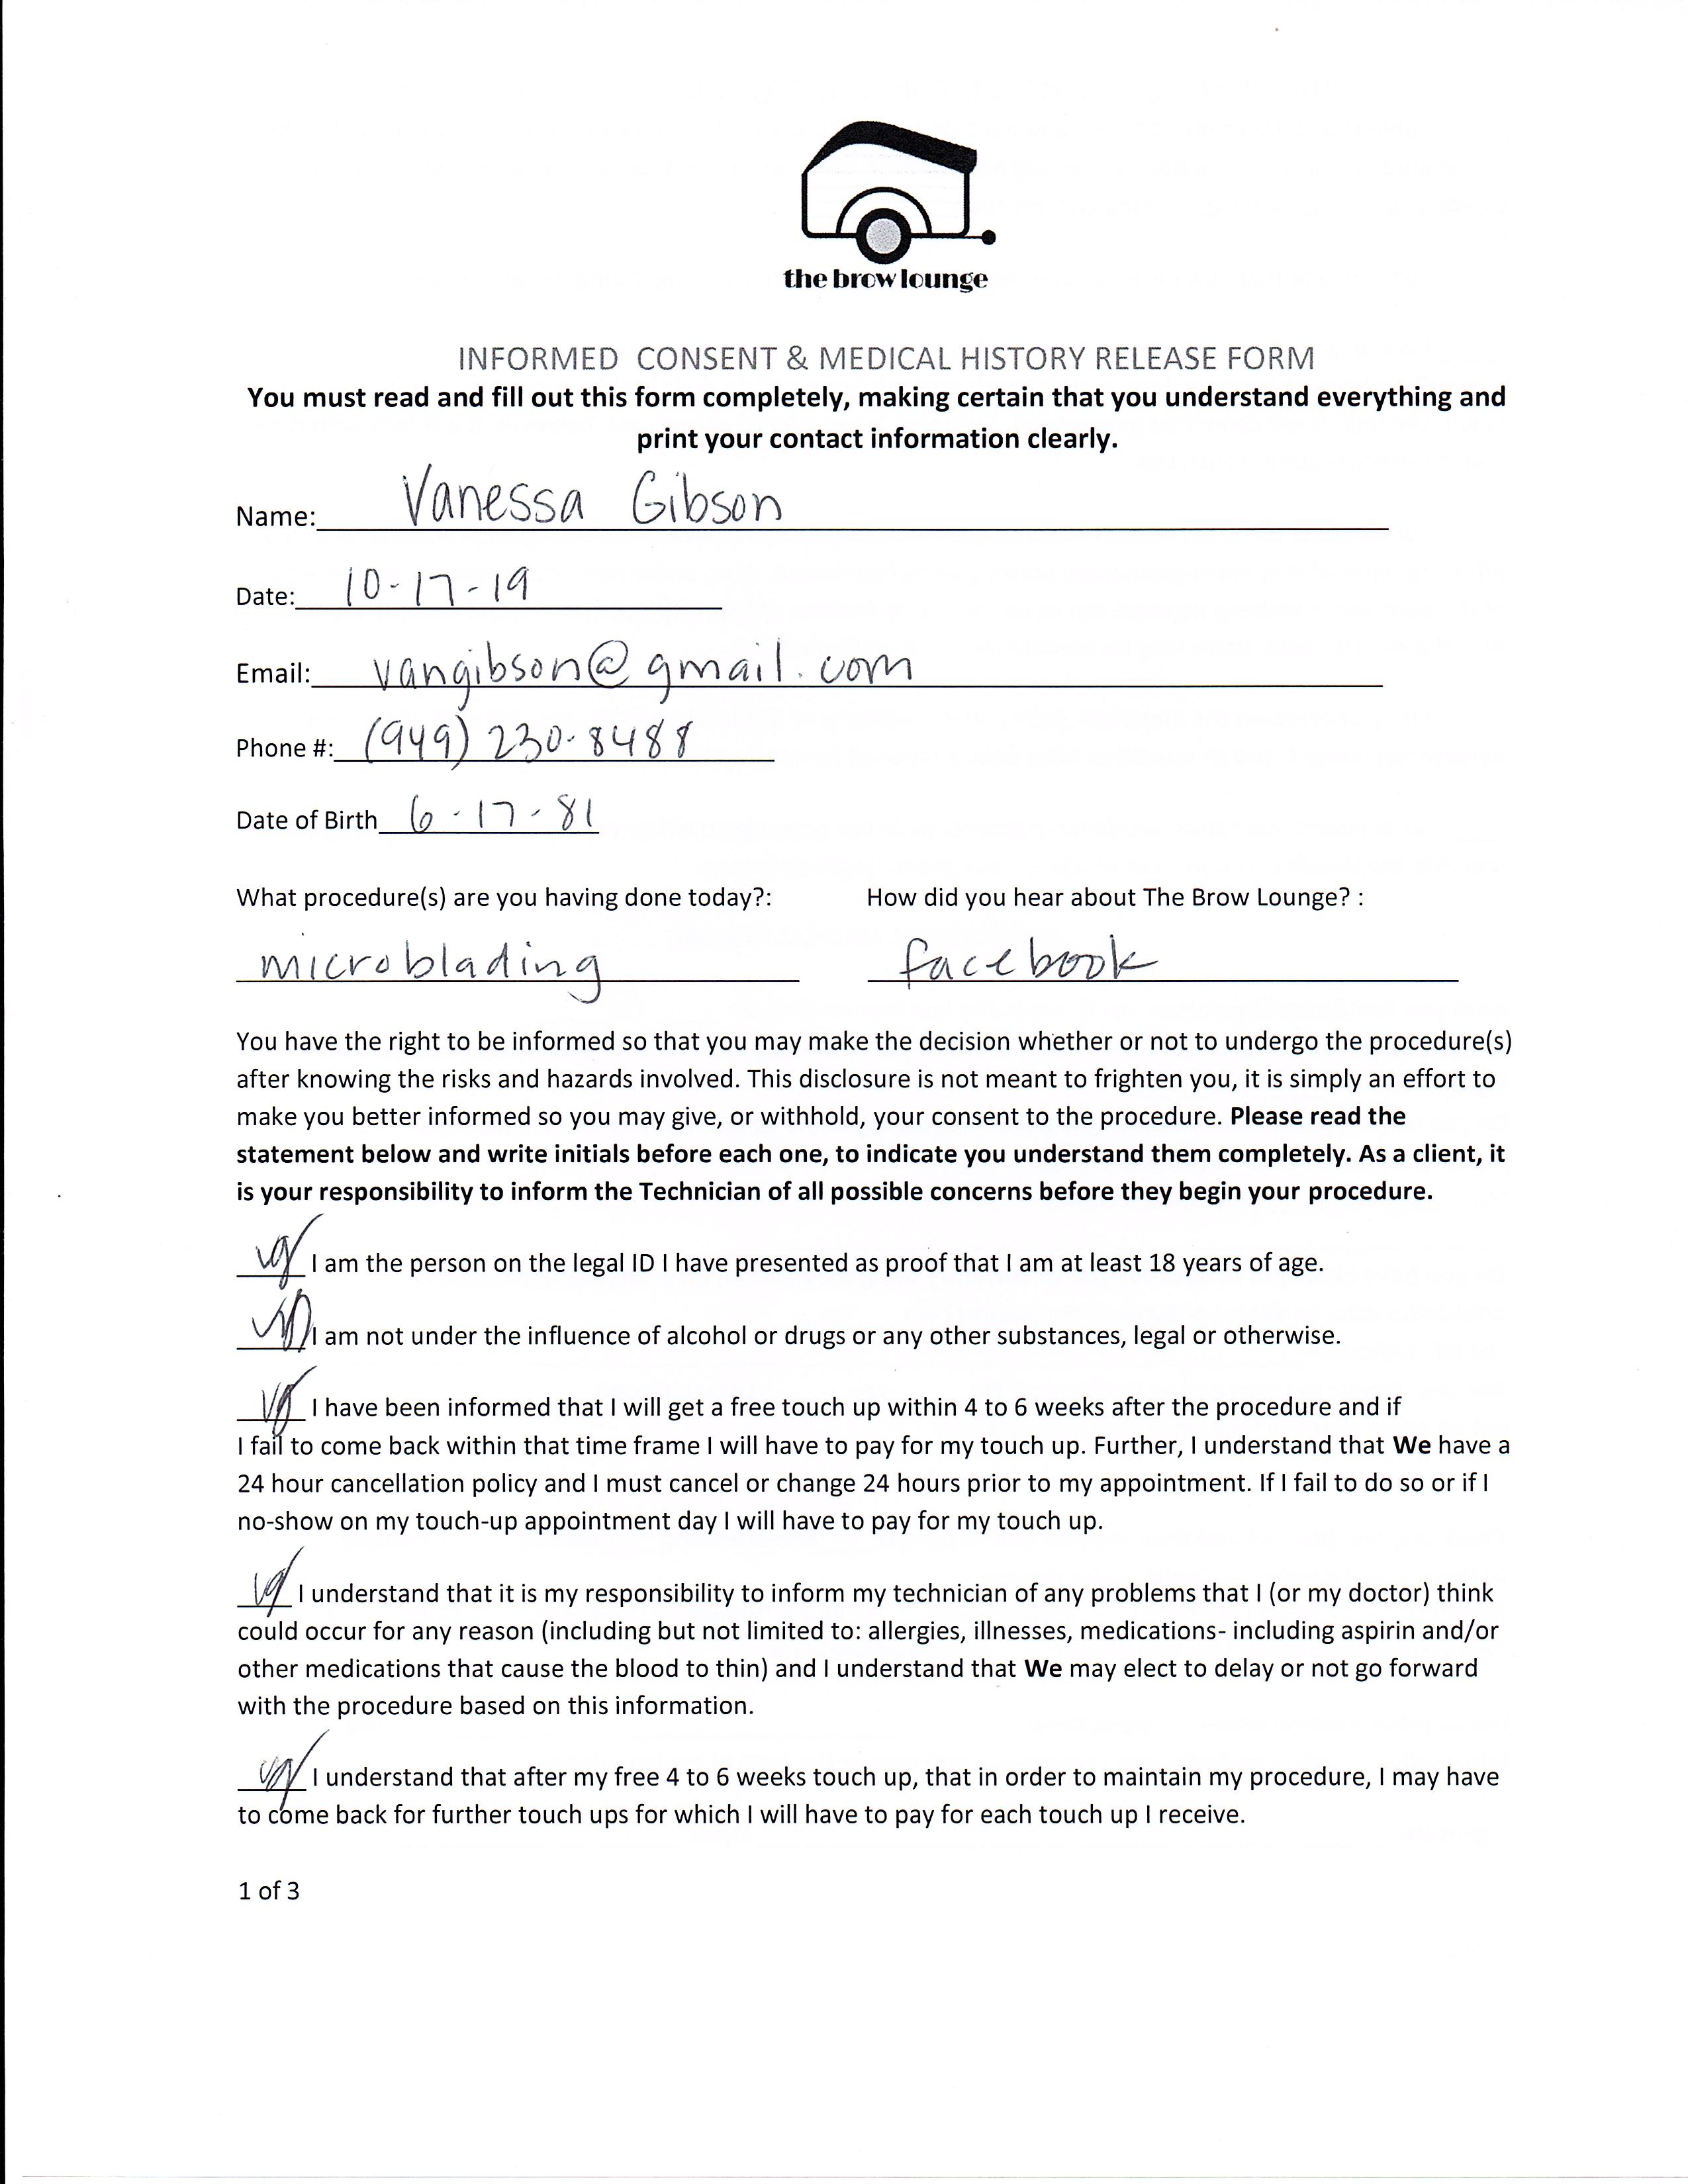 the brow lounge
INFORMED CONSENT & MEDICAL HISTORY RELEASE FORM
You must read and fill out this form completely, making certain that you understand everything and
print your contact information clearly.
Name: Vanessa Gibson
Date: 10-17-19
Email: vangibson@gmail.com
Phone #: (949) 230-8488
Date of Birth 6-17-81
What procedure(s) are you having done today?: How did you hear about The Brow Lounge? :
microblading facebook
You have the right to be informed so that you may make the decision whether or not to undergo the procedure(s)
after knowing the risks and hazards involved. This disclosure is not meant to frighten you, it is simply an effort to
make you better informed so you may give, or withhold, your consent to the procedure. Please read the
statement below and write initials before each one, to indicate you understand them completely. As a client, it
is your responsibility to inform the Technician of all possible concerns before they begin your procedure.
vg I am the person on the legal ID I have presented as proof that I am at least 18 years of age.
vg I am not under the influence of alcohol or drugs or any other substances, legal or otherwise.
vg I have been informed that I will get a free touch up within 4 to 6 weeks after the procedure and if
I fail to come back within that time frame I will have to pay for my touch up. Further, I understand that We have a
24 hour cancellation policy and I must cancel or change 24 hours prior to my appointment. If I fail to do so or if I
no-show on my touch-up appointment day I will have to pay for my touch up.
vg I understand that it is my responsibility to inform my technician of any problems that I (or my doctor) think
could occur for any reason (including but not limited to: allergies, illnesses, medications- including aspirin and/or
other medications that cause the blood to thin) and I understand that We may elect to delay or not go forward
with the procedure based on this information.
vg I understand that after my free 4 to 6 weeks touch up, that in order to maintain my procedure, I may have
to come back for further touch ups for which I will have to pay for each touch up I receive.
1 of 3